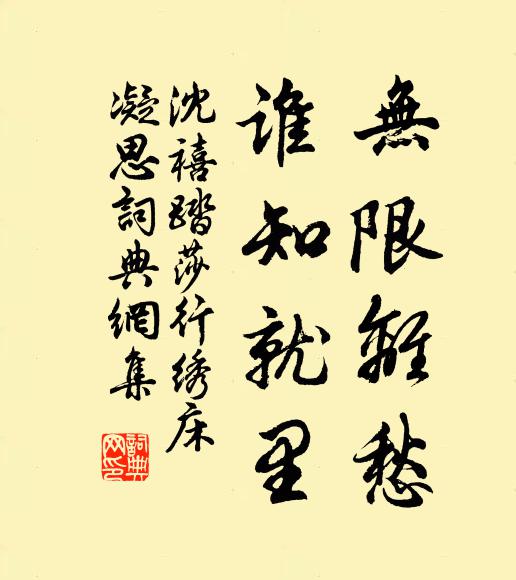 無限離愁
誰知就里
沈禧踏莎行綉床
凝思詞典網集
詞典网印